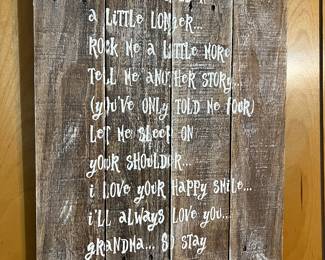 a LITTLE LONGER...
ROCK ME a LITTLE MORE
TELL ME ANOTHER STORY
(YOU'VE ONLY TOLD ME FOUR)
LET ME SLEEP ON
YOUR SHOULDER...
i LOVE YOUR HAPPY SMILE...
i'LL ALWAYS LOVE YOU...
GRANDMA... SO STAY